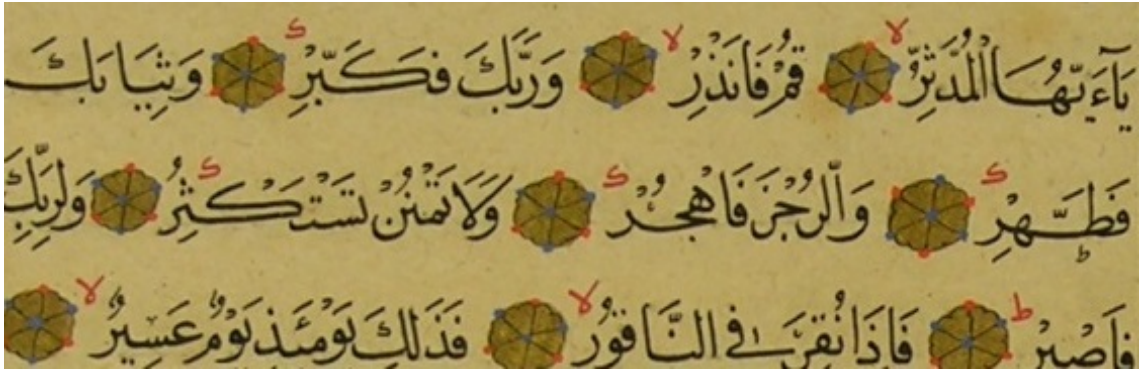 يَآءَيُّهَا الْمُدَّثِّرُ ۙ قُمْ فَاَنْذِرْ ۙ وَرَبَّكَ فَكَبِّرْ ك وَثِيَابَكَ
فَطَهِّرْ ك وَالرُّجْزَ فَاهْجُرْ ك وَلَا تَمْنُنْ تَسْتَكْثِرُ ك وَلِرَبِّكَ
فَاصْبِرْ ط فَاِذَا نُقِرَ فِي النَّاقُورِ ۙ فَذٰلِكَ يَوْمَئِذٍ يَوْمٌ عَسِيرٌ ۙ